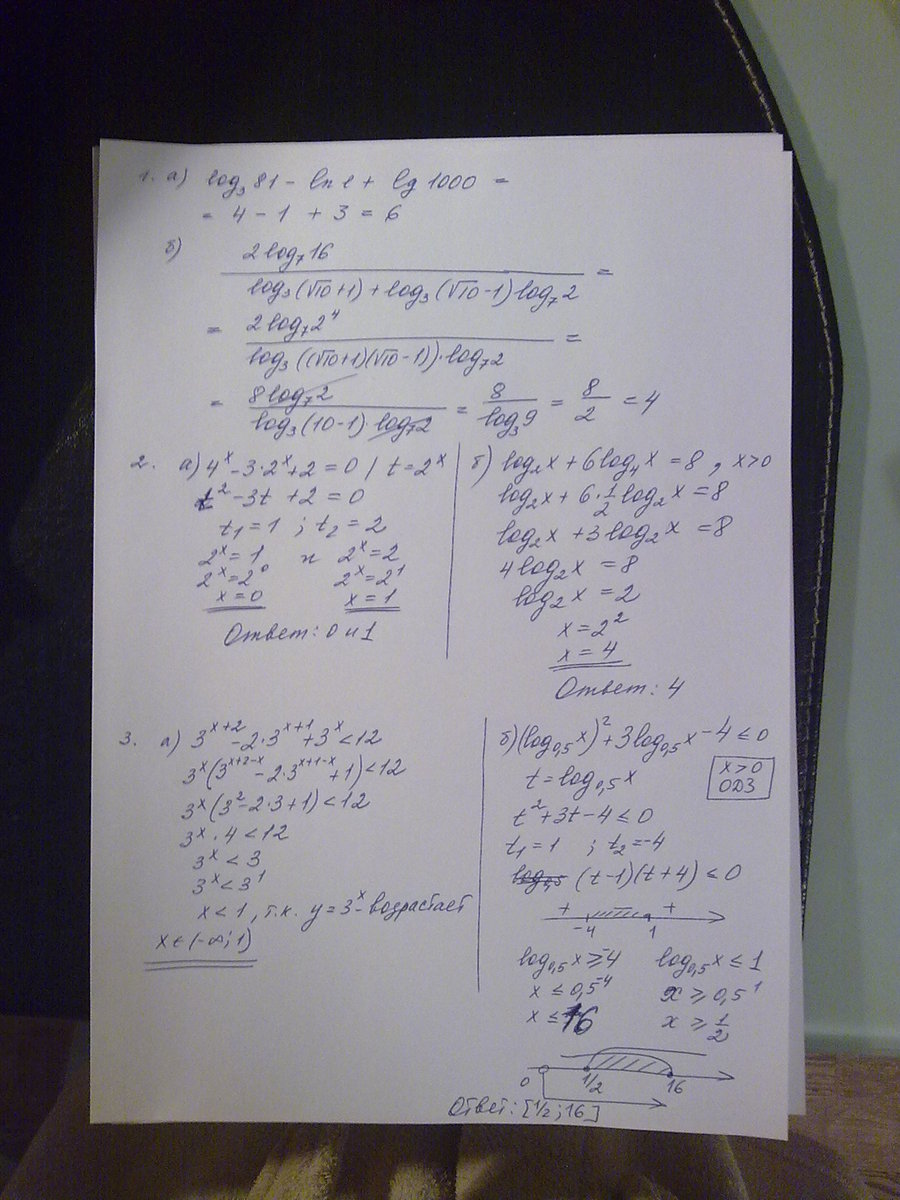 1. а) log₃81 - ln e + lg 1000 =
= 4 - 1 + 3 = 6
б) 2log₇16 / log₃(√10+1) + log₃(√10-1) log₇2 =
= 2log₇2⁴ / log₃((√10+1)(√10-1))·log₇2 =
= 8log₇2 / log₃(10-1) log₇2 = 8 / log₃9 = 8/2 = 4
2. а) 4ˣ - 3·2ˣ + 2 = 0 / t = 2ˣ
t² - 3t + 2 = 0
t₁ = 1 ; t₂ = 2
2ˣ = 1 и 2ˣ = 2
2ˣ = 2⁰ 2ˣ = 2¹
x = 0 x = 1
Ответ: 0 и 1
б) log₂x + 6log₄x = 8, x>0
log₂x + 6·1/2 log₂x = 8
log₂x + 3log₂x = 8
4log₂x = 8
log₂x = 2
x = 2²
x = 4
Ответ: 4
3. а) 3ˣ⁺² - 2·3ˣ⁺¹ + 3ˣ < 12
3ˣ(3ˣ⁺²⁻ˣ - 2·3ˣ⁺¹⁻ˣ + 1) < 12
3ˣ(3² - 2·3 + 1) < 12
3ˣ · 4 < 12
3ˣ < 3
3ˣ < 3¹
x < 1, т.к. y = 3ˣ - возрастает
x ∈ (-∞; 1)
б) (log₀,₅x)² + 3log₀,₅x - 4 ≤ 0
x>0
ОДЗ
t = log₀,₅x
t² + 3t - 4 ≤ 0
t₁ = 1 ; t₂ = -4
(t-1)(t+4) ≤ 0
+ - +
-4 1
log₀,₅x ≥ -4 log₀,₅x ≤ 1
x ≤ 0,5⁻⁴ x ≥ 0,5¹
x ≤ 16 x ≥ 1/2
0 1/2 16
Ответ: [1/2; 16]